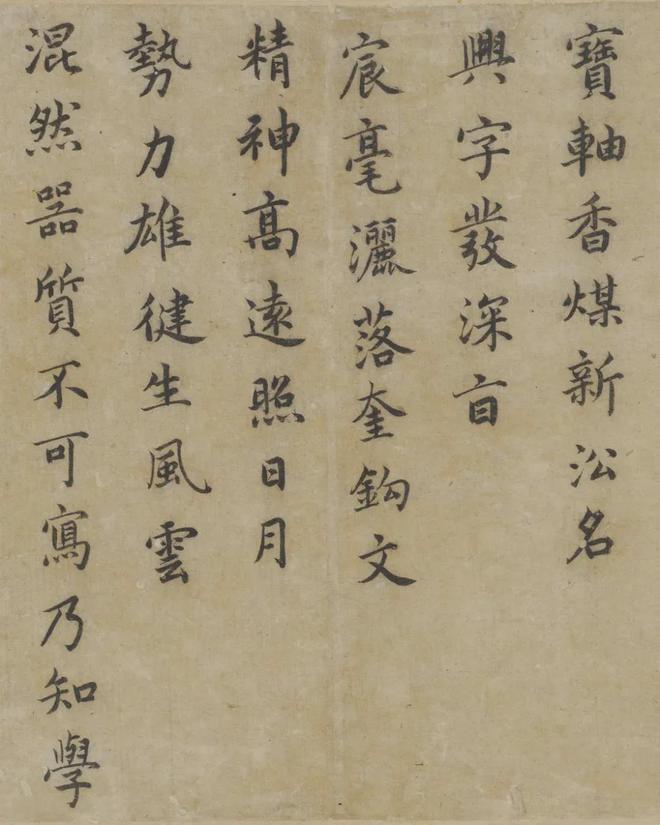 寶軸香煤新㳂名
興字發深㫖
宸毫灑落奎鈎文
精神髙遠照日月
勢力雄健生風雲
混然器質不可寫乃知學